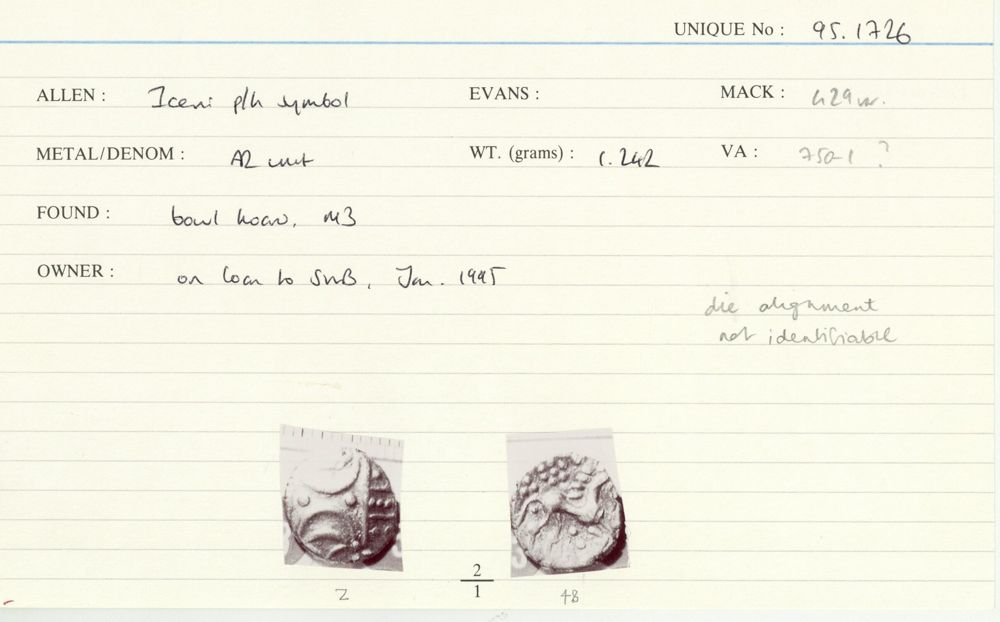 UNIQUE No : 95.1726
ALLEN : Iceni p/h symbol EVANS : MACK : 429 var.
METAL/DENOM : AR unit WT. (grams) : 1.242 VA : 750-1 ?
FOUND : bowl hoard, M3
OWNER : on loan to SNB, Jan. 1995
die alignment
not identifiable
2
1
Z 48